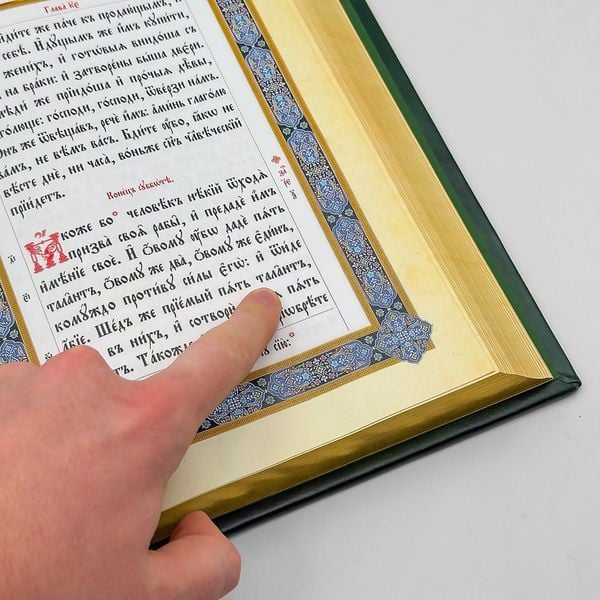 Глава̀ к҃е
и҆ди́те же па́че къ продаю́щымъ, и҆
себѣ̀. И҆дꙋ́щымъ же и҆̀мъ кꙋпи́ти,
жени́хъ, и҆ готѡ́выѧ внидо́ша съ
на бра́ки: и҆ затворе́ны бы́ша две́ри.
же прїидо́ша и҆ про́чыѧ дѣ̑вы,
го́споди, го́споди, ѿве́рзи на́мъ.
же ѿвѣща́въ, речѐ и҆̀мъ: а҆ми́нь глаго́лю
ва́мъ, не вѣ́мъ ва́съ. Бди́те ᲂу҆̀бо, ꙗ҆́кѡ не
вѣ́сте днѐ, ни часа̀, во́ньже сн҃ъ чл҃вѣ́ческїй
прїи́детъ.
Коне́цъ сꙋббѡ́тѣ.
Ꙗ҆́коже бо человѣ́къ нѣ́кїй ѿходѧ̀
призва̀ своѧ̑ рабы̑, и҆ предадѐ и҆̀мъ
и҆мѣ́нїе своѐ. И҆ ѻ҆́вомꙋ ᲂу҆́бѡ дадѐ пѧ́ть
тала̑нтъ, ѻ҆́вомꙋ же два̀, ѻ҆́вомꙋ же є҆ди́нъ,
комꙋ́ждо проти́вꙋ си́лы є҆гѡ̀: и҆ ѿи́де
а҆́бїе. Ше́дъ же прїе́мый пѧ́ть тала̑нтъ,
въ ни́хъ, и҆ сотворѝ пѧ́ть
та. Та́кожде